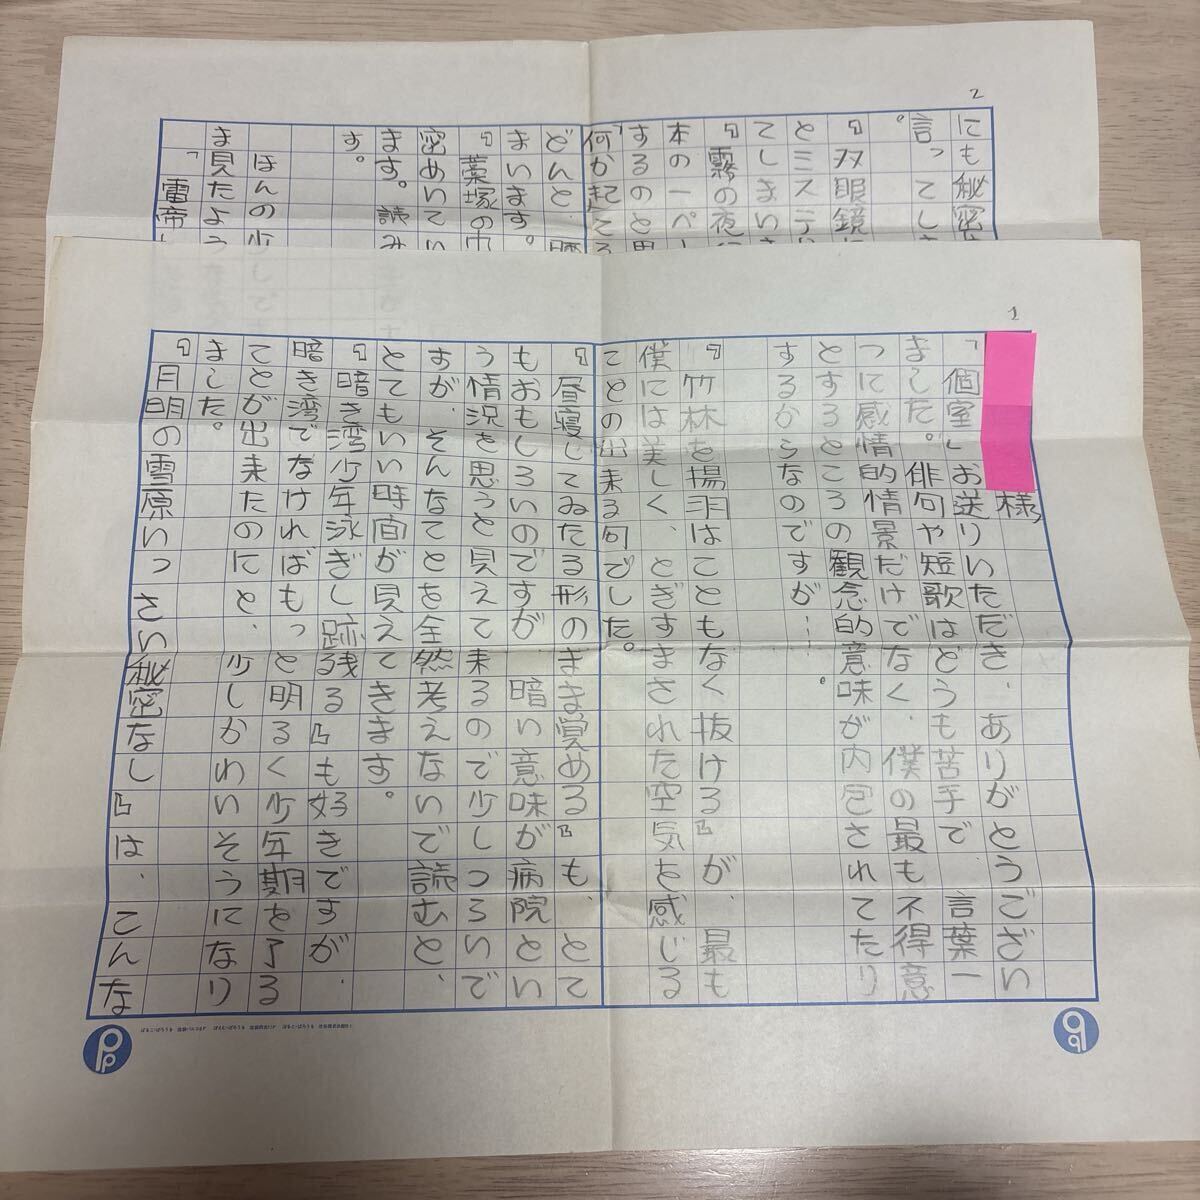 1
様
「個室」お送りいただき、ありがとうござい
ました。俳句や短歌はどうも苦手で 言葉一
つに感情的情景だけでなく、僕の最も不得意
とするところの観念的意味が内包されてたり
するからなのですが……。
『竹林を揚羽はこともなく抜ける』が、最も
僕には美しく、とぎすまされた空気を感じる
ことの出来る句でした。
『昼寝してゐたる形のまま覚める』も、とて
もおもしろいのですが、暗い意味が病院とい
う情況を思うと見えて来るので少しつらいで
すが、そんなことを全然考えないで読むと、
とてもいい時間が見えてきます。
『暗き湾少年泳ぎし跡残る』も好きですが、
暗き湾でなければもっと明るく少年期を了る
ことが出来たのにと、少しかわいそうになり
ました。
『月明の雪原いっさい秘密なし』は、こんな
2
にも秘密
言ってし
。
『双眼鏡に
とミステリ
てしまいま
『霧の夜
本の一ペー
するのと思
何か起こる
どんと、
まいます。
『藁塚の中
密めいてい
ます。読み
す。
ほんの少し
ま見たよう
「雷帝」